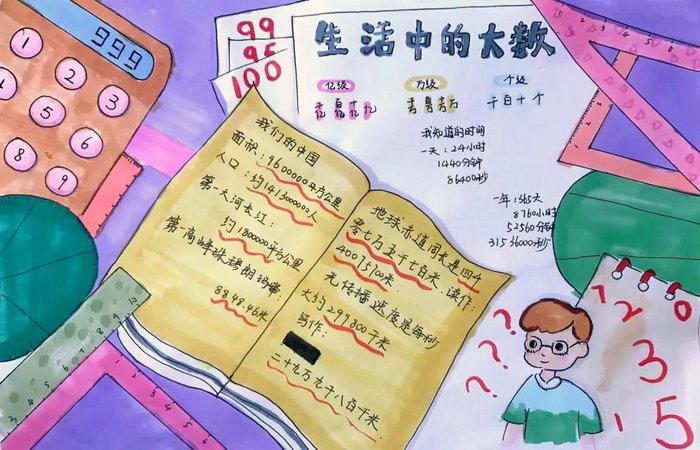 999
1
2
3
5
6
8
9
99
95
100
生活中的大数
亿级
万级
个级
千百十个
我知道的时间
一天:24小时
1440分钟
86400秒
一年:365天
8760小时
52560分钟
31536000秒
我们的中国
面积:9600000平方公里
人口:约141300000人
第一大河长江:
约1800000平方公里
第一高峰珠穆朗玛峰:
8848.46米
地球赤道周长是四千
零七万五千七百米 读作:
40075700米
光传播速度是每秒
大约299800千米
写作:
二十九万九千八百千米
???
1
2
0
3
1
5